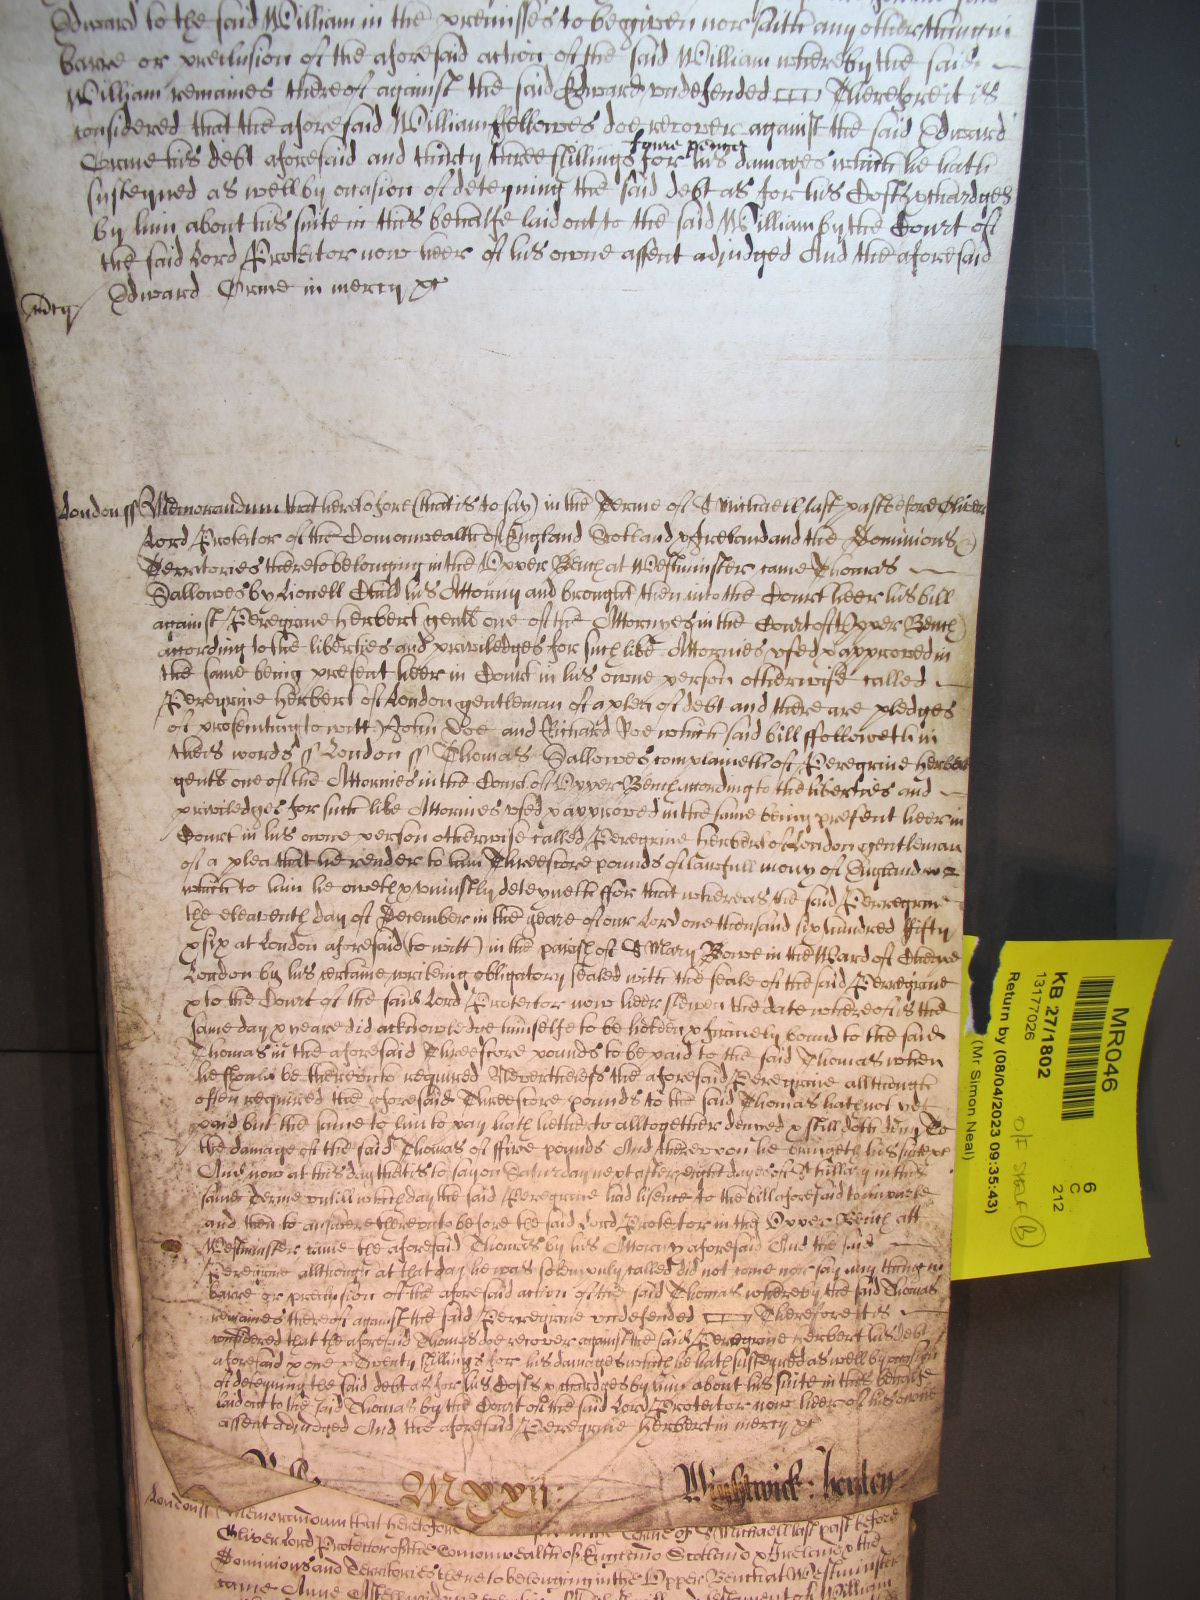 Edward to the said William in the premisses to be given nor saith any other thing in
barre or preclusion of the aforesaid action of the said William whereby the said
William remaines thereof against the said Edward undefended Therefore it is
considered that the aforesaid William ffellowes doe recover against the said Edward
Orme his debt aforesaid and thirty three shillings foure pence for his damages which he hath
susteyned as well by occasion of deteyning the said debt as for his Costs & chardges
by him about his suite in this behalfe laid out to the said William by the Court of
the said Lord Protector now heer of his owne assent adjudged And the aforesaid
Edward Orme in mercy &c
London ss Memorandum that heretofore (that is to say) in the Terme of St Michaell last past before Oliver
Lord Protector of the Comonwealth of England Scotland & Ireland and the Dominions &
Territories thereto belonging in the Upper Bench at Westminster came Thomas
Sallowes by Lionell his Attorny and brought then into the Court heer his bill
against Peregrine Herbert gentl one of the Attornyes in the Court of Upper Bench
according to the liberties and priviledges for such like Attornies used & approved in
the same being present heer in Court in his owne person otherwise called
Peregrine Herbert of London gentleman of a plea of debt and there are pledges
of prosecuting to witt John Doe and Richard Roe which said bill ffolloweth in
theis words ss London ss Thomas Sallowes complaineth of Peregrine Herbert
gent one of the Attornies in the Court of Upper Bench according to the liberties and
priviledges for such like Attornies used & approved in the same being present heer in
Court in his owne person otherwise called Peregrine Herbert of London gentleman
of a plea that he render to him Threescore pounds of lawfull mony of England
which to him he oweth & uniustly deteyneth ffor that whereas the said Peregrine
the eleaventh day of December in the yeare of our Lord one thousand six hundred ffifty
& six at London aforesaid (to witt) in the parish of St Mary Bowe in the Ward of Cheape
London by his certaine writing obligatory sealed with the seale of the said Peregrine
& to the Court of the said Lord Protector now heer shewen the date whereof is the
same day & yeare did acknowledge himselfe to be holden & firmely bound to the said
Thomas in the aforesaid Threescore pounds to be paid to the said Thomas when
he should be thereunto required Neverthelesse the aforesaid Peregrine allthough
often required the aforesaid Threescore pounds to the said Thomas hath not yet
paid but the same to him to pay hath hitherto alltogether denyed & still doth deny To
the damage of the said Thomas of ffive pounds And thereupon he bringeth his suite &c
And now at this day that is to say on Saturday next after eight dayes of St Hillary in this
same Terme untill which day the said Peregrine had licence to the bill aforesaid to imparle
and then to answere thereunto before the said Lord Protector in the Upper Bench att
Westminster came the aforesaid Thomas by his Attorny aforesaid And the said
Peregrine allthough at that day he was solempnly called did not come nor say any thing in
barre or preclusion of the aforesaid action of the said Thomas whereby the said Thomas
remaines thereof against the said Peregrine undefended Therefore it is
considered that the aforesaid Thomas doe recover against the said Peregrine Herbert his debt
aforesaid & one & Twenty shillings for his damages which he hath susteyned as well by occasion
of deteyning the said debt as for his Costs & chardges by him about his suite in this behalfe
laid out to the said Thomas by the Court of the said Lord Protector now heer of his owne
assent adjudged And the aforesaid Peregrine Herbert in mercy &c
MXXII: Wightwick: Henley
London ss Memorandum that heretofore Terme of St Michaell last past before
Oliver Lord Protector of the Comonwealth of England Scotland & Ireland & the
Dominions and Territories thereto belonging in the Upper Bench at Westminster
came Anne William
MR046
6
C
212
KB 27/1802
13177026
O/F SHELF (B)
Return by (08/04/2023 09:35:43)
(Mr Simon Neal)